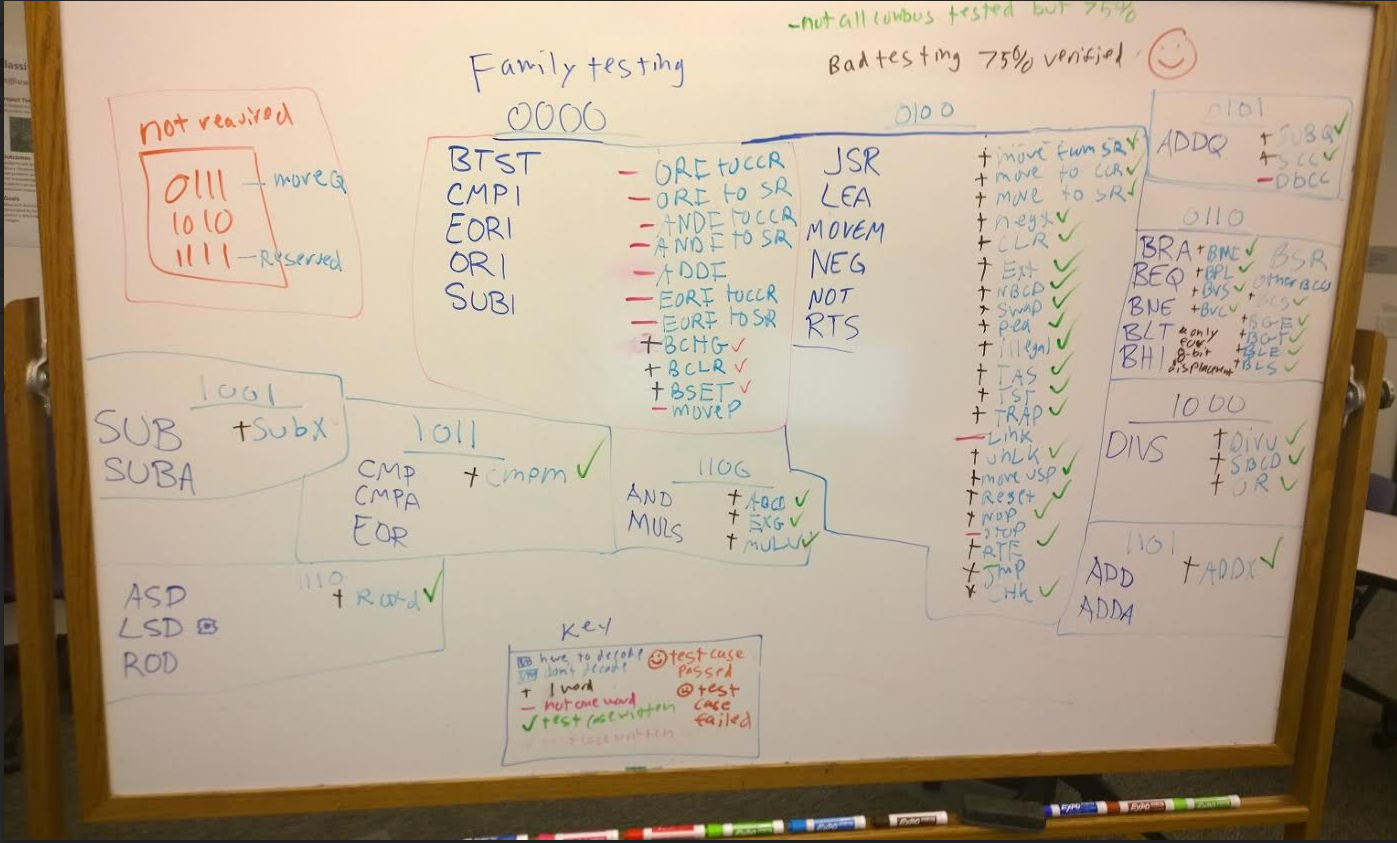 -not all combos tested but 75%
Bad testing 75% verified
Family testing
not required
0111 - moveQ
1010
1111 - Reserved
0000
BTST
CMPI
EORI
ORI
SUBI
- ORI to CCR
- ORI to SR
- ANDI to CCR
- ANDI to SR
- ADDI
- EORI to CCR
- EORI to SR
+ BCHG ✓
+ BCLR ✓
+ BSET ✓
- moveP
0100
JSR
LEA
MOVEM
NEG
NOT
RTS
+ move from SR ✓
+ move to CCR ✓
+ move to SR ✓
+ negx ✓
+ CLR ✓
+ Ext ✓
+ NBCD ✓
+ swap ✓
+ pea ✓
+ illegal ✓
+ TAS ✓
+ TST ✓
+ TRAP ✓
- Link
+ unLk ✓
+ move USP ✓
+ Reset ✓
+ NOP ✓
- STOP
+ RTE ✓
+ Jmp
+ CHK ✓
0101
ADDQ
+ SUBQ ✓
+ SCC ✓
- DbCC
0110
BRA
BEQ
BNE
BLT
BHI
+ BMI ✓
+ BPL ✓
+ BVS ✓
+ BVC ✓
only
for
8-bit
displacement
BSR
other BCCs
+ BCS ✓
+ BGE ✓
+ BGT ✓
+ BLE ✓
+ BLS ✓
1000
DIVS
+ Divu ✓
+ SBCD ✓
+ OR ✓
1001
SUB
SUBA
+ SubX
1011
CMP
CMPA
EOR
+ cmpm ✓
1100
AND
MULS
+ ABCD ✓
+ EXG ✓
+ MULU ✓
1101
ADD
ADDA
+ ADDX ✓
1110
ASD
LSD
ROD
Key
have to decode
don't decode
+ 1 word
- not one word
✓ test case written
test case
passed
test
case
failed
EXPO
EXPO
EXPO